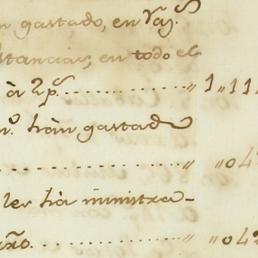 n gastado, en Raz.s
stancias, en todo el
à 2 p.s .............. " 1 " 11
n.o hàn gastado
.................. " " 04
ler hà ministra-
xâo. .............. " " 04